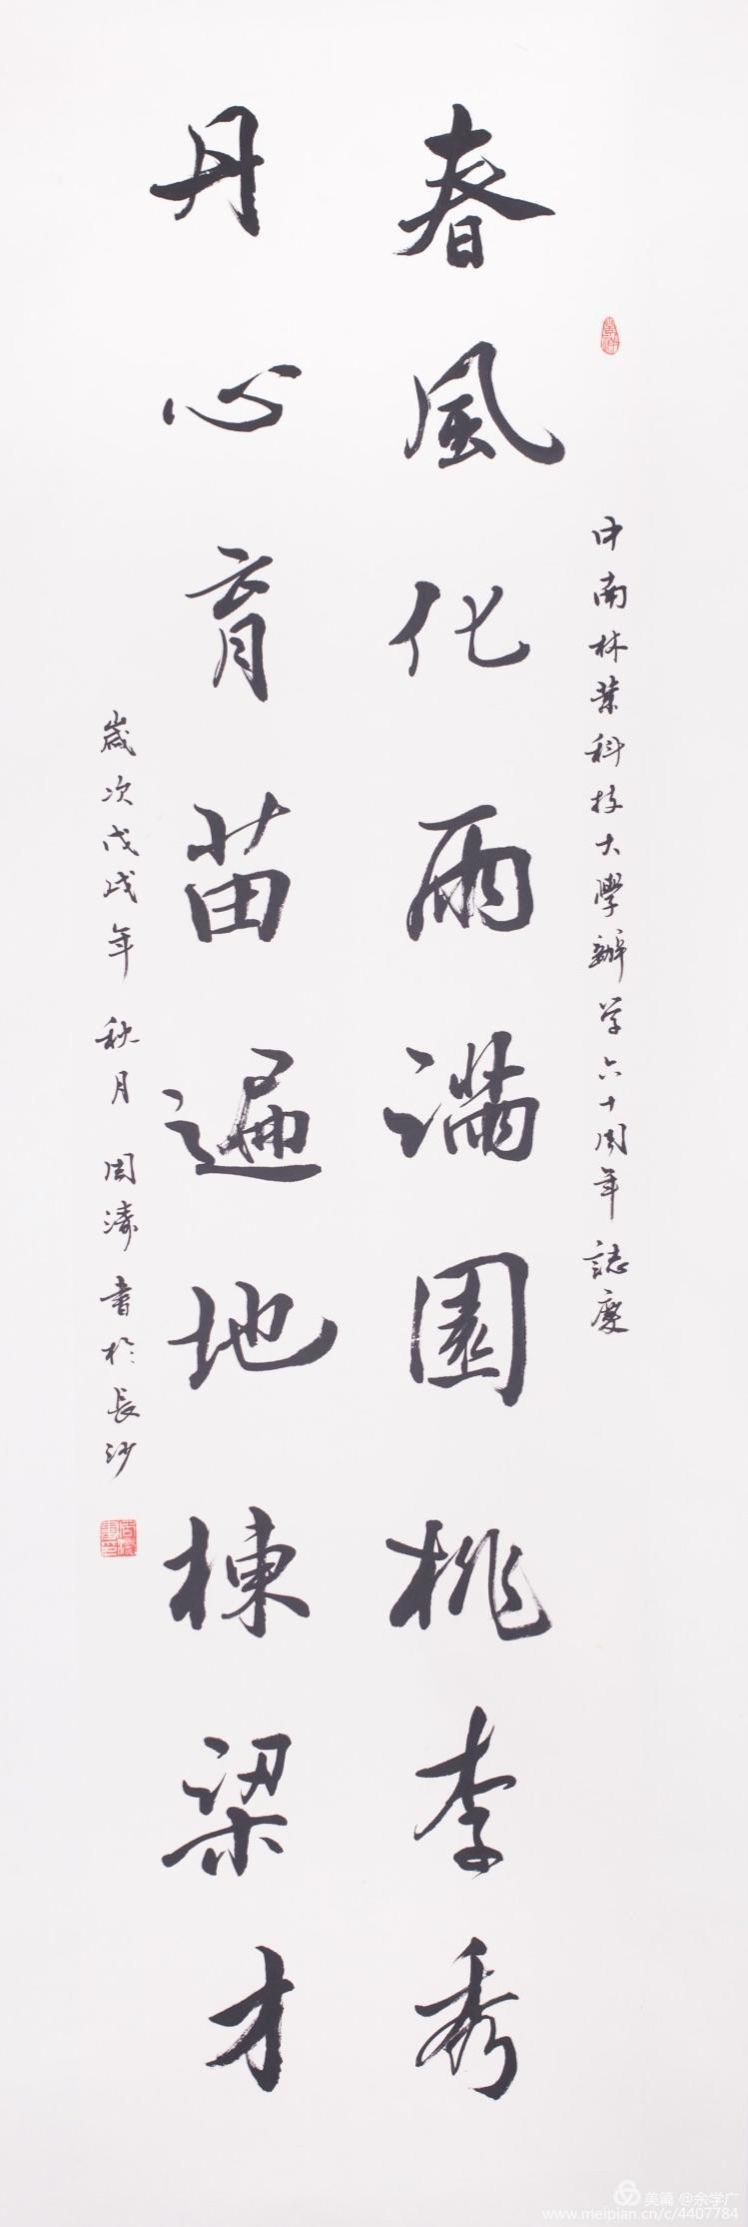 中南林業科技大學辦学六十周年誌慶
春風化雨滿園桃李秀
丹心育苗遍地棟梁才
歲次戊戌年秋月周濤書於長沙
美篇 @余学广
www.meipian.cn/c/4407784